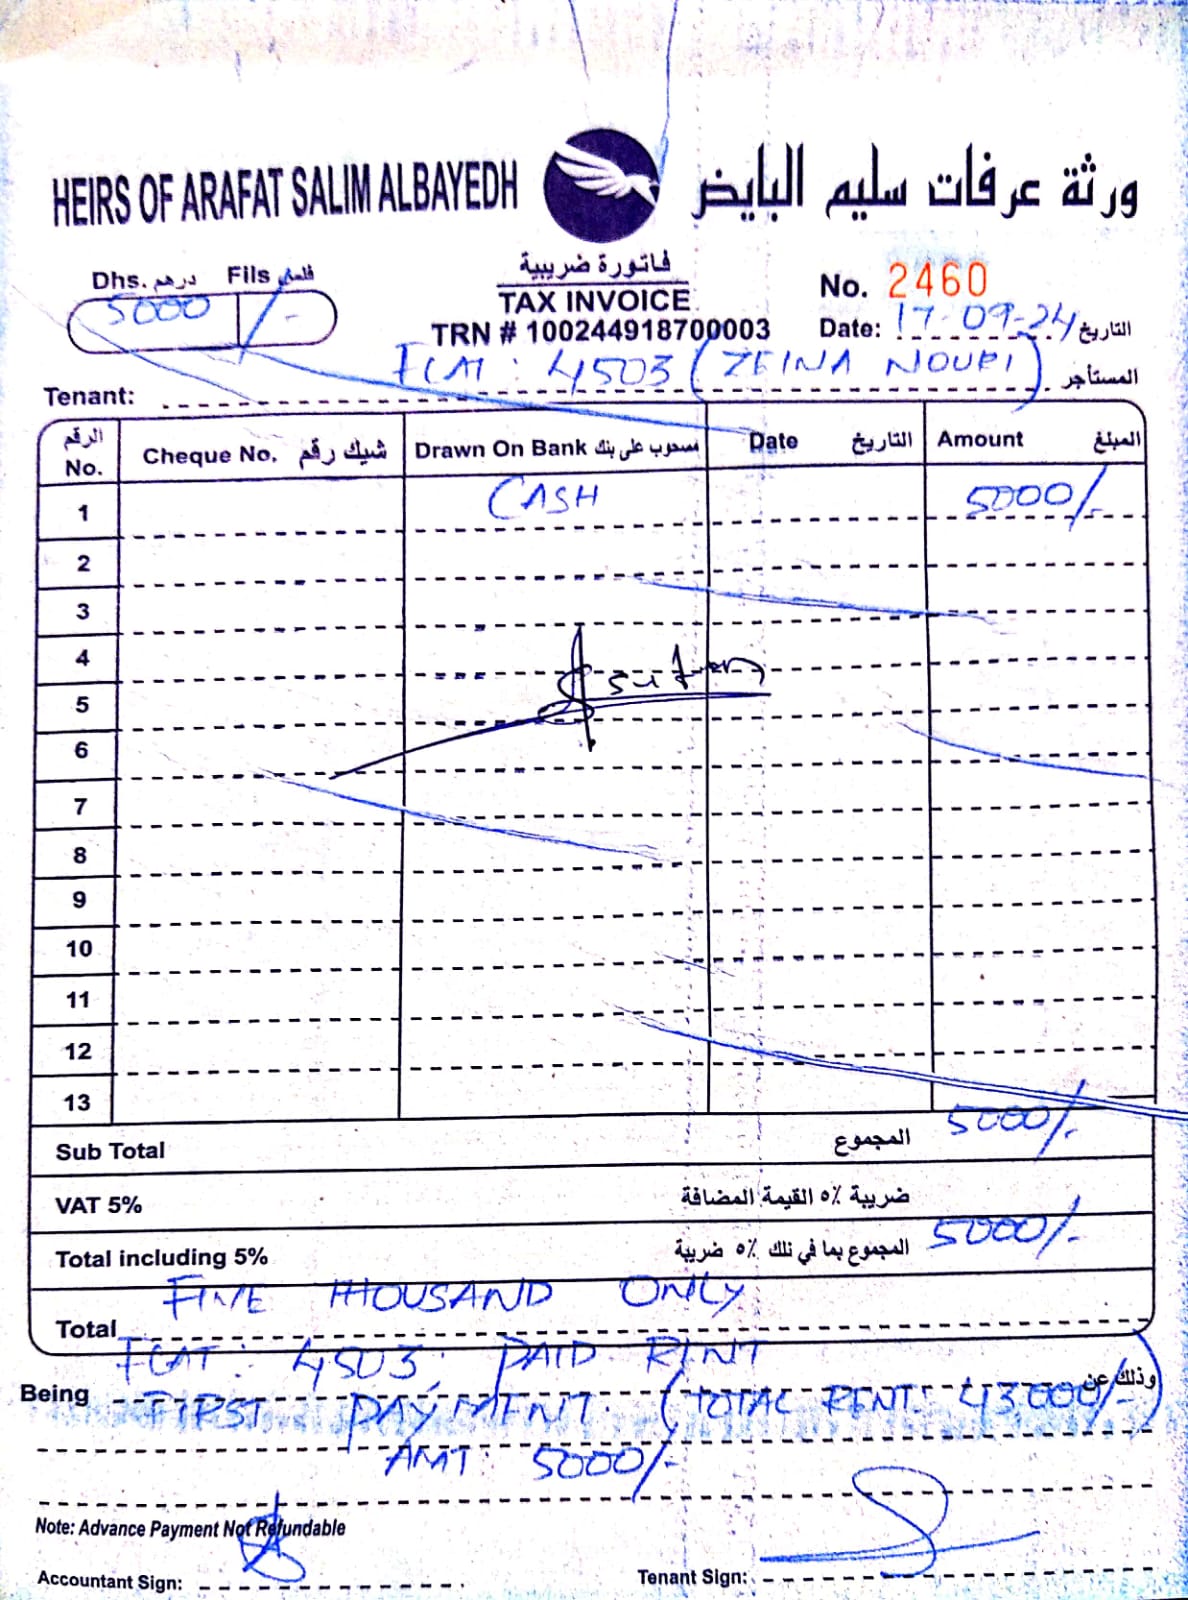 HEIRS OF ARAFAT SALIM ALBAYEDH ورثة عرفات سليم البايض
Dhs. درهم Fils فلس
5000 /-
فاتورة ضريبية
TAX INVOICE
TRN # 100244918700003
No. 2460
Date: 17-09-24 التاريخ
Tenant: FLAT: 4503 (ZEINA NOURI) المستأجر
الرقم No. Cheque No. شيك رقم Drawn On Bank مسحوب على بنك Date التاريخ Amount المبلغ
1 CASH 5000/-
2
3
4
5
6
7
8
9
10
11
12
13
Sub Total المجموع 5000/-
VAT 5% ضريبة ٥٪ القيمة المضافة
Total including 5% المجموع بما في ذلك ٥٪ ضريبة 5000/-
Total FIVE THOUSAND ONLY
FLAT: 4503, PAID RENT
Being FIRST PAYMENT. (TOTAL RENT: 43000/-) وذلك عن
AMT: 5000/-
Note: Advance Payment Not Refundable
Accountant Sign: Tenant Sign: